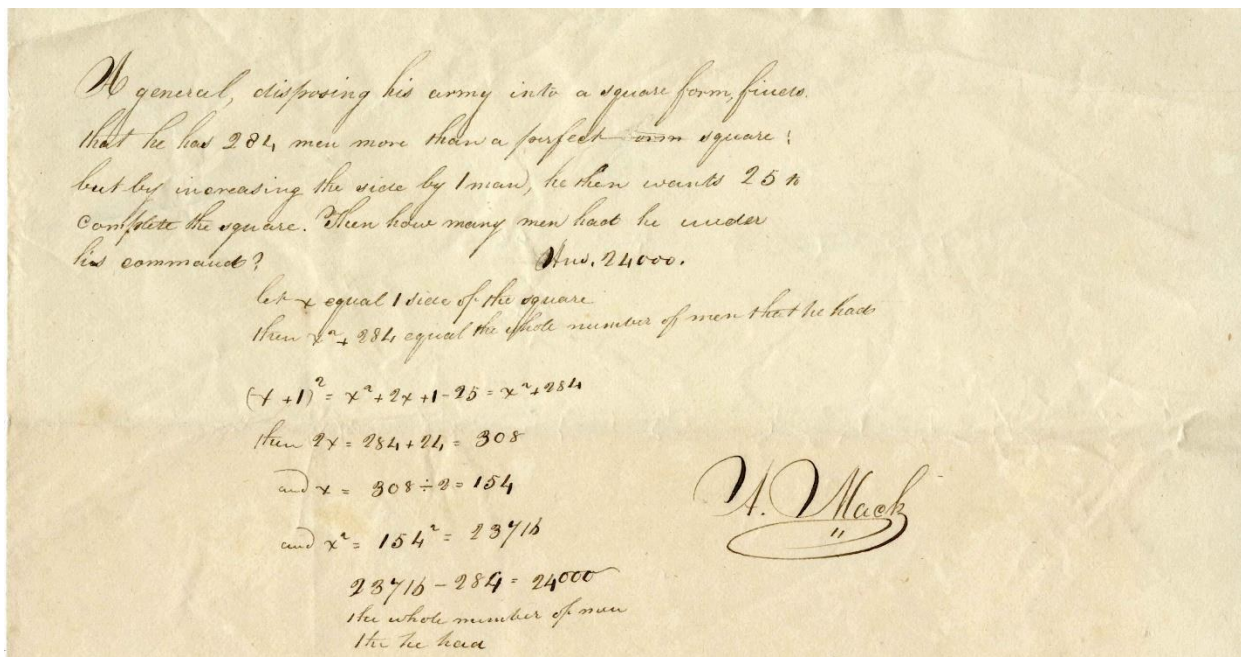 A general, disposing his army into a square form, finds
that he has 284 men more than a perfect square;
but by increasing the side by 1 man, he then wants 25 to
complete the square. Then how many men had he under
his command? Ans. 24000.
let x equal 1 side of the square
then x²+284 equal the whole number of men that he had
(x+1)² = x²+2x+1-25 = x²+284
then 2x = 284+24 = 308
and x = 308÷2 = 154
and x² = 154² = 23716
23716-284 = 24000
the whole number of men
the he had
A. Mack